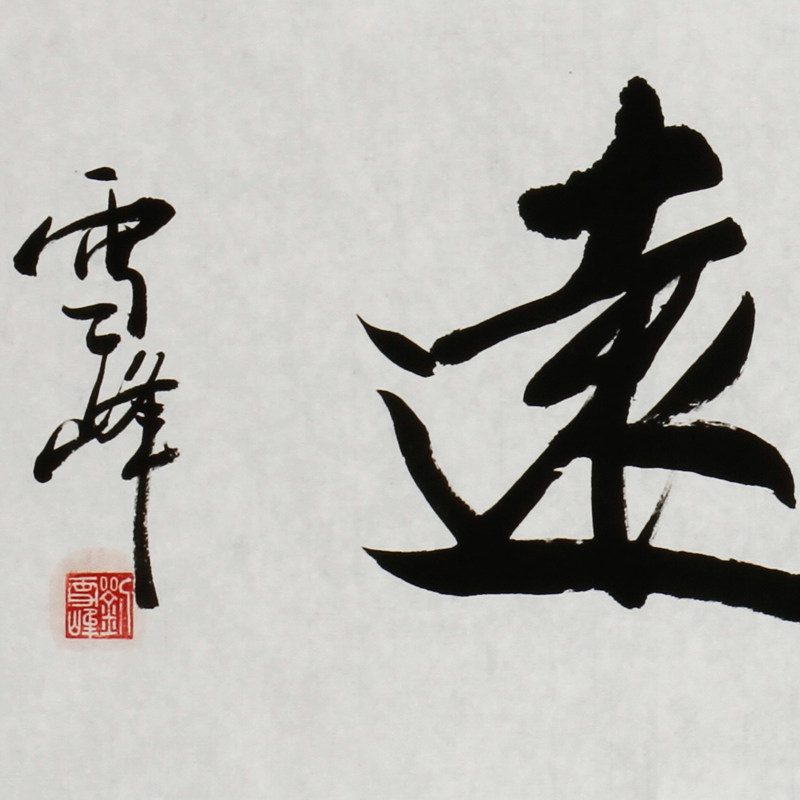 遠
雪峰
劉雪峰